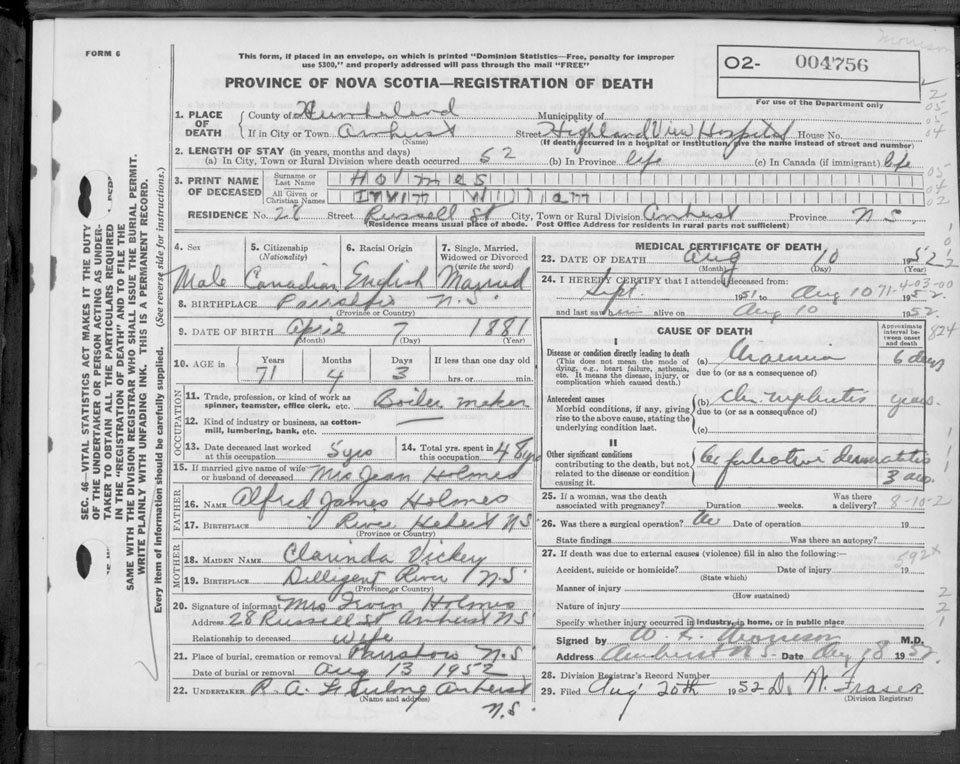 FORM 6
This form, if placed in an envelope, on which is printed "Dominion Statistics—Free, penalty for improper
use $300," and properly addressed will pass through the mail "FREE"
PROVINCE OF NOVA SCOTIA—REGISTRATION OF DEATH
O2- 004756
For use of the Department only
SEC. 46—VITAL STATISTICS ACT MAKES IT THE DUTY
OF THE UNDERTAKER OR PERSON ACTING AS UNDER-
TAKER TO OBTAIN ALL THE PARTICULARS REQUIRED
IN THE "REGISTRATION OF DEATH" AND TO FILE THE
SAME WITH THE DIVISION REGISTRAR WHO SHALL ISSUE THE BURIAL PERMIT.
WRITE PLAINLY WITH UNFADING INK. THIS IS A PERMANENT RECORD.
Every item of information should be carefully supplied. (See reverse side for instructions.)
1. PLACE OF DEATH County of Cumberland Municipality of
If in City or Town Amherst Street Highland View Hospital House No.
(Name) (If death occurred in a hospital or institution, give the name instead of street and number)
2. LENGTH OF STAY (in years, months and days)
(a) In City, Town or Rural Division where death occurred 52 (b) In Province life (c) In Canada (if immigrant) life
3. PRINT NAME OF DECEASED Surname or Last Name Holmes
All Given or Christian Names Irvin William
RESIDENCE No. 28 Street Russell St City, Town or Rural Division Amherst Province N S
(Residence means usual place of abode. Post Office Address for residents in rural parts not sufficient)
4. Sex 5. Citizenship (Nationality) 6. Racial Origin 7. Single, Married, Widowed or Divorced (write the word)
Male Canadian English Married
8. BIRTHPLACE Parrsboro N.S.
(Province or Country)
9. DATE OF BIRTH April 7 1881
(Month) (Day) (Year)
10. AGE in Years Months Days If less than one day old
71 4 3 hrs. or min.
OCCUPATION
11. Trade, profession, or kind of work as spinner, teamster, office clerk, etc. Boiler maker
12. Kind of industry or business, as cotton-mill, lumbering, bank, etc. —
13. Date deceased last worked at this occupation 5 yrs 14. Total yrs. spent in this occupation 48 yrs
15. If married give name of wife or husband of deceased Mrs Jean Holmes
FATHER
16. NAME Alfred James Holmes
17. BIRTHPLACE River Hebert NS
(Province or Country)
MOTHER
18. MAIDEN NAME Clarinda Vickery
19. BIRTHPLACE Dilligent River N.S.
(Province or Country)
20. Signature of informant Mrs Irvin Holmes
Address 28 Russell St Amherst NS
Relationship to deceased Wife
21. Place of burial, cremation or removal Parrsboro N.S
Date of burial or removal Aug 13 1952
22. UNDERTAKER R. A. Furlong Amherst
(Name and address) N.S.
MEDICAL CERTIFICATE OF DEATH
23. DATE OF DEATH Aug 10 1952
(Month) (Day) (Year)
24. I HEREBY CERTIFY that I attended deceased from:
Sept. 1951 to Aug 10 1952
71-4-03-00
and last saw him alive on Aug 10 1952
CAUSE OF DEATH
Approximate interval between onset and death
824
I
Disease or condition directly leading to death (a) Uraemia 6 days
(This does not mean the mode of dying, e.g., heart failure, asthenia, etc. It means the disease, injury, or complication which caused death.)
due to (or as a consequence of)
Antecedent causes (b) Chr. nephritis years
Morbid conditions, if any, giving rise to the above cause, stating the underlying condition last.
due to (or as a consequence of)
(c)
II
Other significant conditions contributing to the death, but not related to the disease or condition causing it.
Exfoliative dermatitis 3 mo.
25. If a woman, was the death associated with pregnancy? Duration weeks. Was there a delivery? 8-10-2
26. Was there a surgical operation? no Date of operation 19
State findings Was there an autopsy?
27. If death was due to external causes (violence) fill in also the following:—
592x
Accident, suicide or homicide? Date of injury 19
(State which)
Manner of injury
(How sustained)
Nature of injury
Specify whether injury occurred in industry, in home, or in public place
Signed by M.D.
Address Amherst N.S. Date Aug 18 1952
28. Division Registrar's Record Number
29. Filed Aug 20th 1952 D. W. Fraser
(Division Registrar)